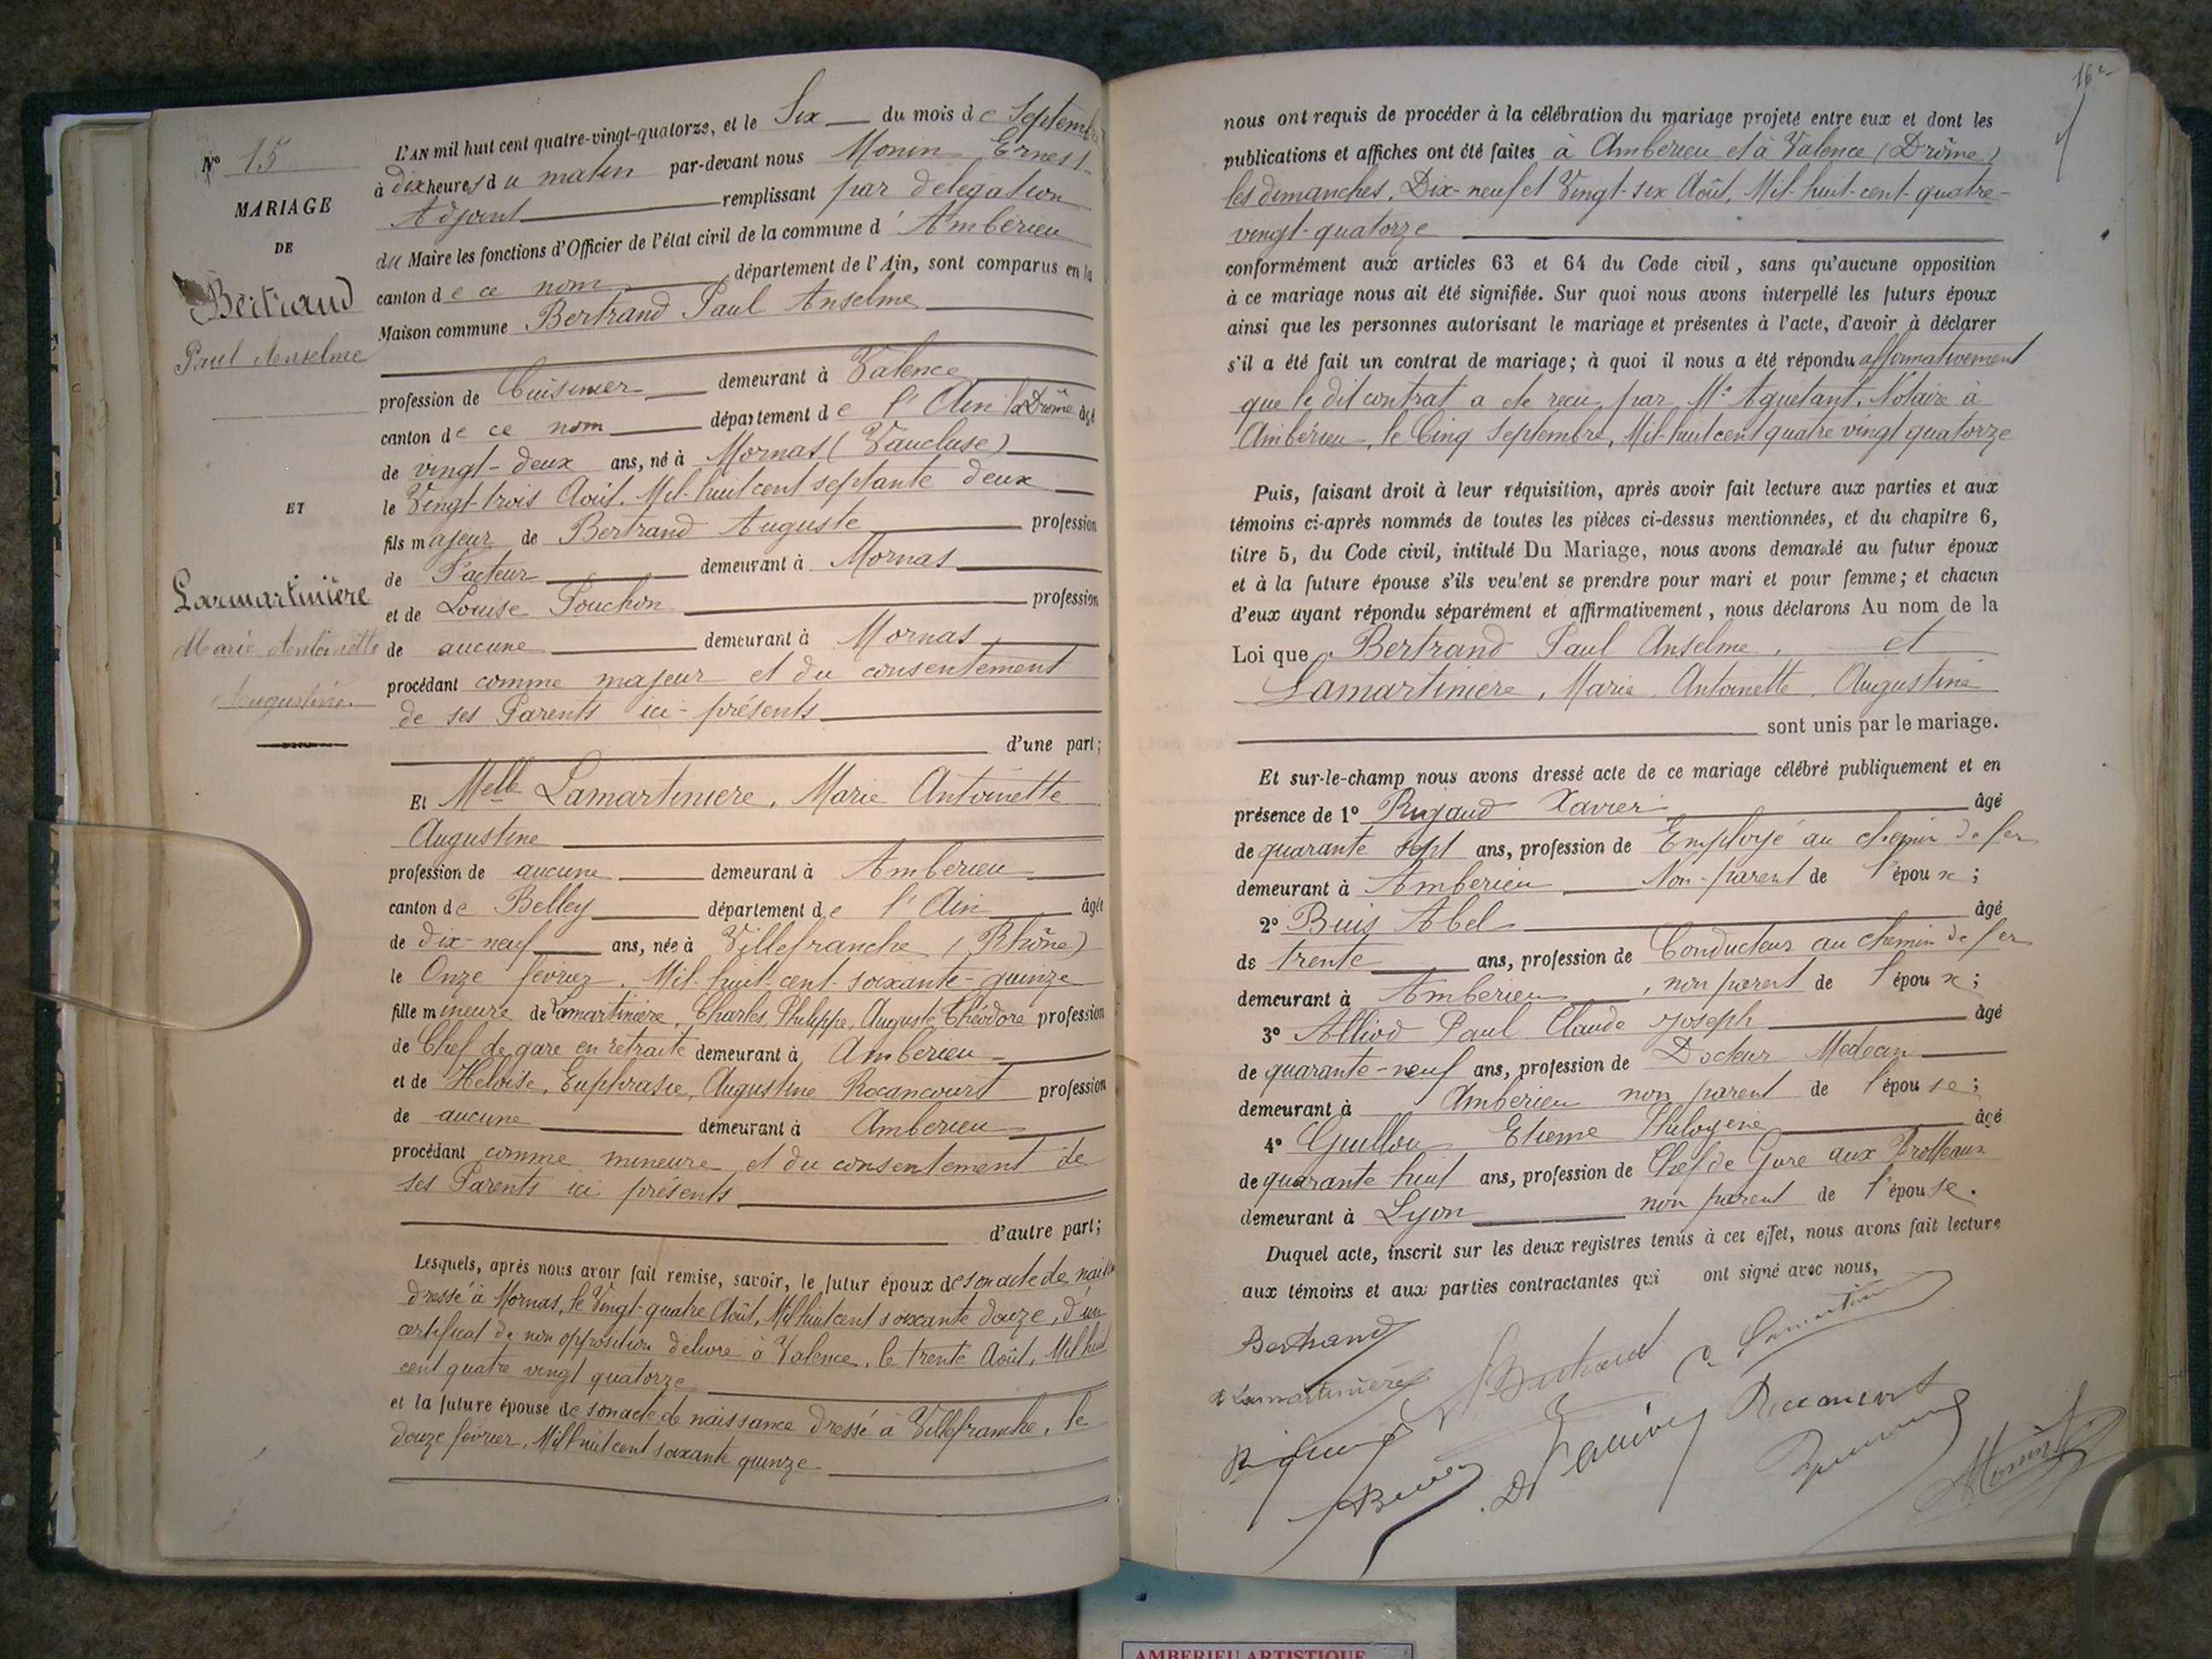 Nº 15
MARIAGE
DE
Bertrand
Paul Anselme
ET
Lamartinière
Marie Antoinette
Augustine.
L'AN mil huit cent quatre-vingt-quatorze, et le Six du mois de Septembre
à dix heures du matin par-devant nous Monin Ernest
Adjoint remplissant par délégation
du Maire les fonctions d'Officier de l'état civil de la commune d'Ambérieu
canton de ce nom département de l'Ain, sont comparus en la
Maison commune Bertrand Paul Anselme
profession de Cuisinier demeurant à Valence
canton de ce nom département de l'Ain la Drôme âgé
de vingt-deux ans, né à Mornas (Vaucluse)
le Vingt-trois Août. Mil-huit cent septante deux
fils majeur de Bertrand Auguste profession
de Facteur demeurant à Mornas
et de Louise Souchon profession
de aucune demeurant à Mornas
procédant comme majeur et du consentement
de ses Parents ici-présents
d'une part;
Et Melle Lamartiniere, Marie Antoinette
Augustine
profession de aucune demeurant à Amberieu
canton de Belley département de l'Ain âgée
de dix-neuf ans, née à Villefranche (Rhône)
le Onze février. Mil-huit-cent-soixante-quinze
fille mineure de Lamartinière, Charles, Philippe, Auguste Théodore profession
de Chef de gare en retraite demeurant à Amberieu
et de Heloïse, Euphrasie, Augustine Rocancourt profession
de aucune demeurant à Amberieu
procédant comme mineure et du consentement de
ses Parents ici présents
d'autre part;
Lesquels, après nous avoir fait remise, savoir, le futur époux de son acte de naiss
dressé à Mornas, le Vingt-quatre Août, Mil huit cent soixante douze, d'un
certificat de non opposition délivré à Valence, le trente Août, Mil huit
cent quatre vingt quatorze
et la future épouse de son acte de naissance dressé à Villefranche, le
douze février, Mil huit cent soixante quinze
16
nous ont requis de procéder à la célébration du mariage projeté entre eux et dont les
publications et affiches ont été faites à Ambérieu et à Valence (Drôme)
les dimanches, Dix-neuf et Vingt-six Août, Mil-huit-cent-quatre-
vingt-quatorze
conformément aux articles 63 et 64 du Code civil, sans qu'aucune opposition
à ce mariage nous ait été signifiée. Sur quoi nous avons interpellé les futurs époux
ainsi que les personnes autorisant le mariage et présentes à l'acte, d'avoir à déclarer
s'il a été fait un contrat de mariage; à quoi il nous a été répondu affirmativement
que le dit contrat a été reçu par Me Aguetant, Notaire à
Ambérieu, le Cinq Septembre, Mil-huit cent quatre vingt quatorze
Puis, faisant droit à leur réquisition, après avoir fait lecture aux parties et aux
témoins ci-après nommés de toutes les pièces ci-dessus mentionnées, et du chapitre 6,
titre 5, du Code civil, intitulé Du Mariage, nous avons demandé au futur époux
et à la future épouse s'ils veulent se prendre pour mari et pour femme; et chacun
d'eux ayant répondu séparément et affirmativement, nous déclarons Au nom de la
Loi que Bertrand Paul Anselme, et
Lamartiniere, Marie, Antoinette, Augustine
sont unis par le mariage.
Et sur-le-champ nous avons dressé acte de ce mariage célébré publiquement et en
présence de 1º Rigaud Xavier âgé
de quarante sept ans, profession de Employé au chemin de fer
demeurant à Amberieu Non-parent de l'époux;
2º Buis Abel âgé
de trente ans, profession de Conducteur au chemin de fer
demeurant à Amberieu, non parent de l'époux;
3º Alliod Paul Claude Joseph âgé
de quarante-neuf ans, profession de Docteur Medecin
demeurant à Amberieu non parent de l'épouse;
4º Guillou Etienne Philogène âgé
de quarante huit ans, profession de Chef de Gare aux Brotteaux
demeurant à Lyon non parent de l'épouse.
Duquel acte, inscrit sur les deux registres tenus à cet effet, nous avons fait lecture
aux témoins et aux parties contractantes qui ont signé avec nous,
Bertrand
Lamartinière
Bertrand
Rocancourt
Monin
AMBERIEU ARTISTIQUE